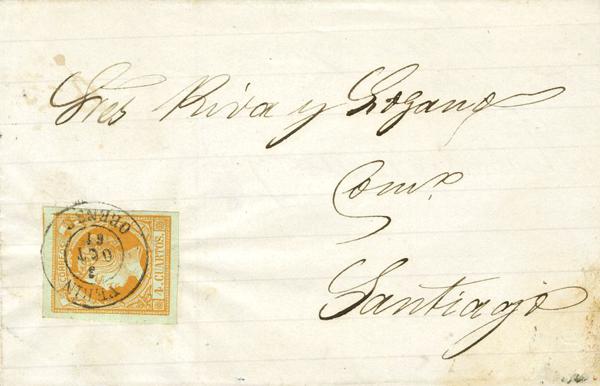 Sres Riva y Lozano
Comº
Santiago
CORREOS
4 CUARTOS.
VERIN
3
OCT
61
ORENSE